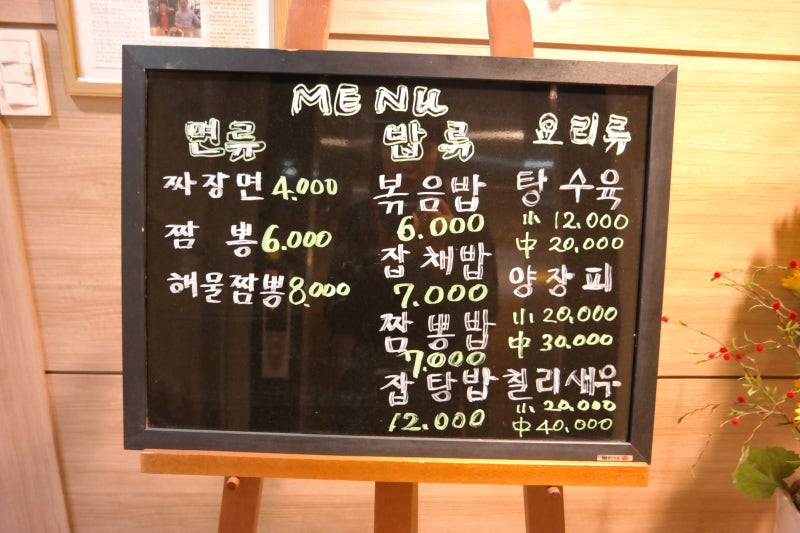 MENU
면류
짜장면 4.000
짬 뽕 6.000
해물짬뽕 8.000
밥류
볶음밥
6.000
잡채밥
7.000
짬뽕밥
7.000
잡탕밥
12.000
요리류
탕수육
小 12,000
中 20,000
양장피
小 20,000
中 30,000
칠리새우
小 20,000
中 40,000